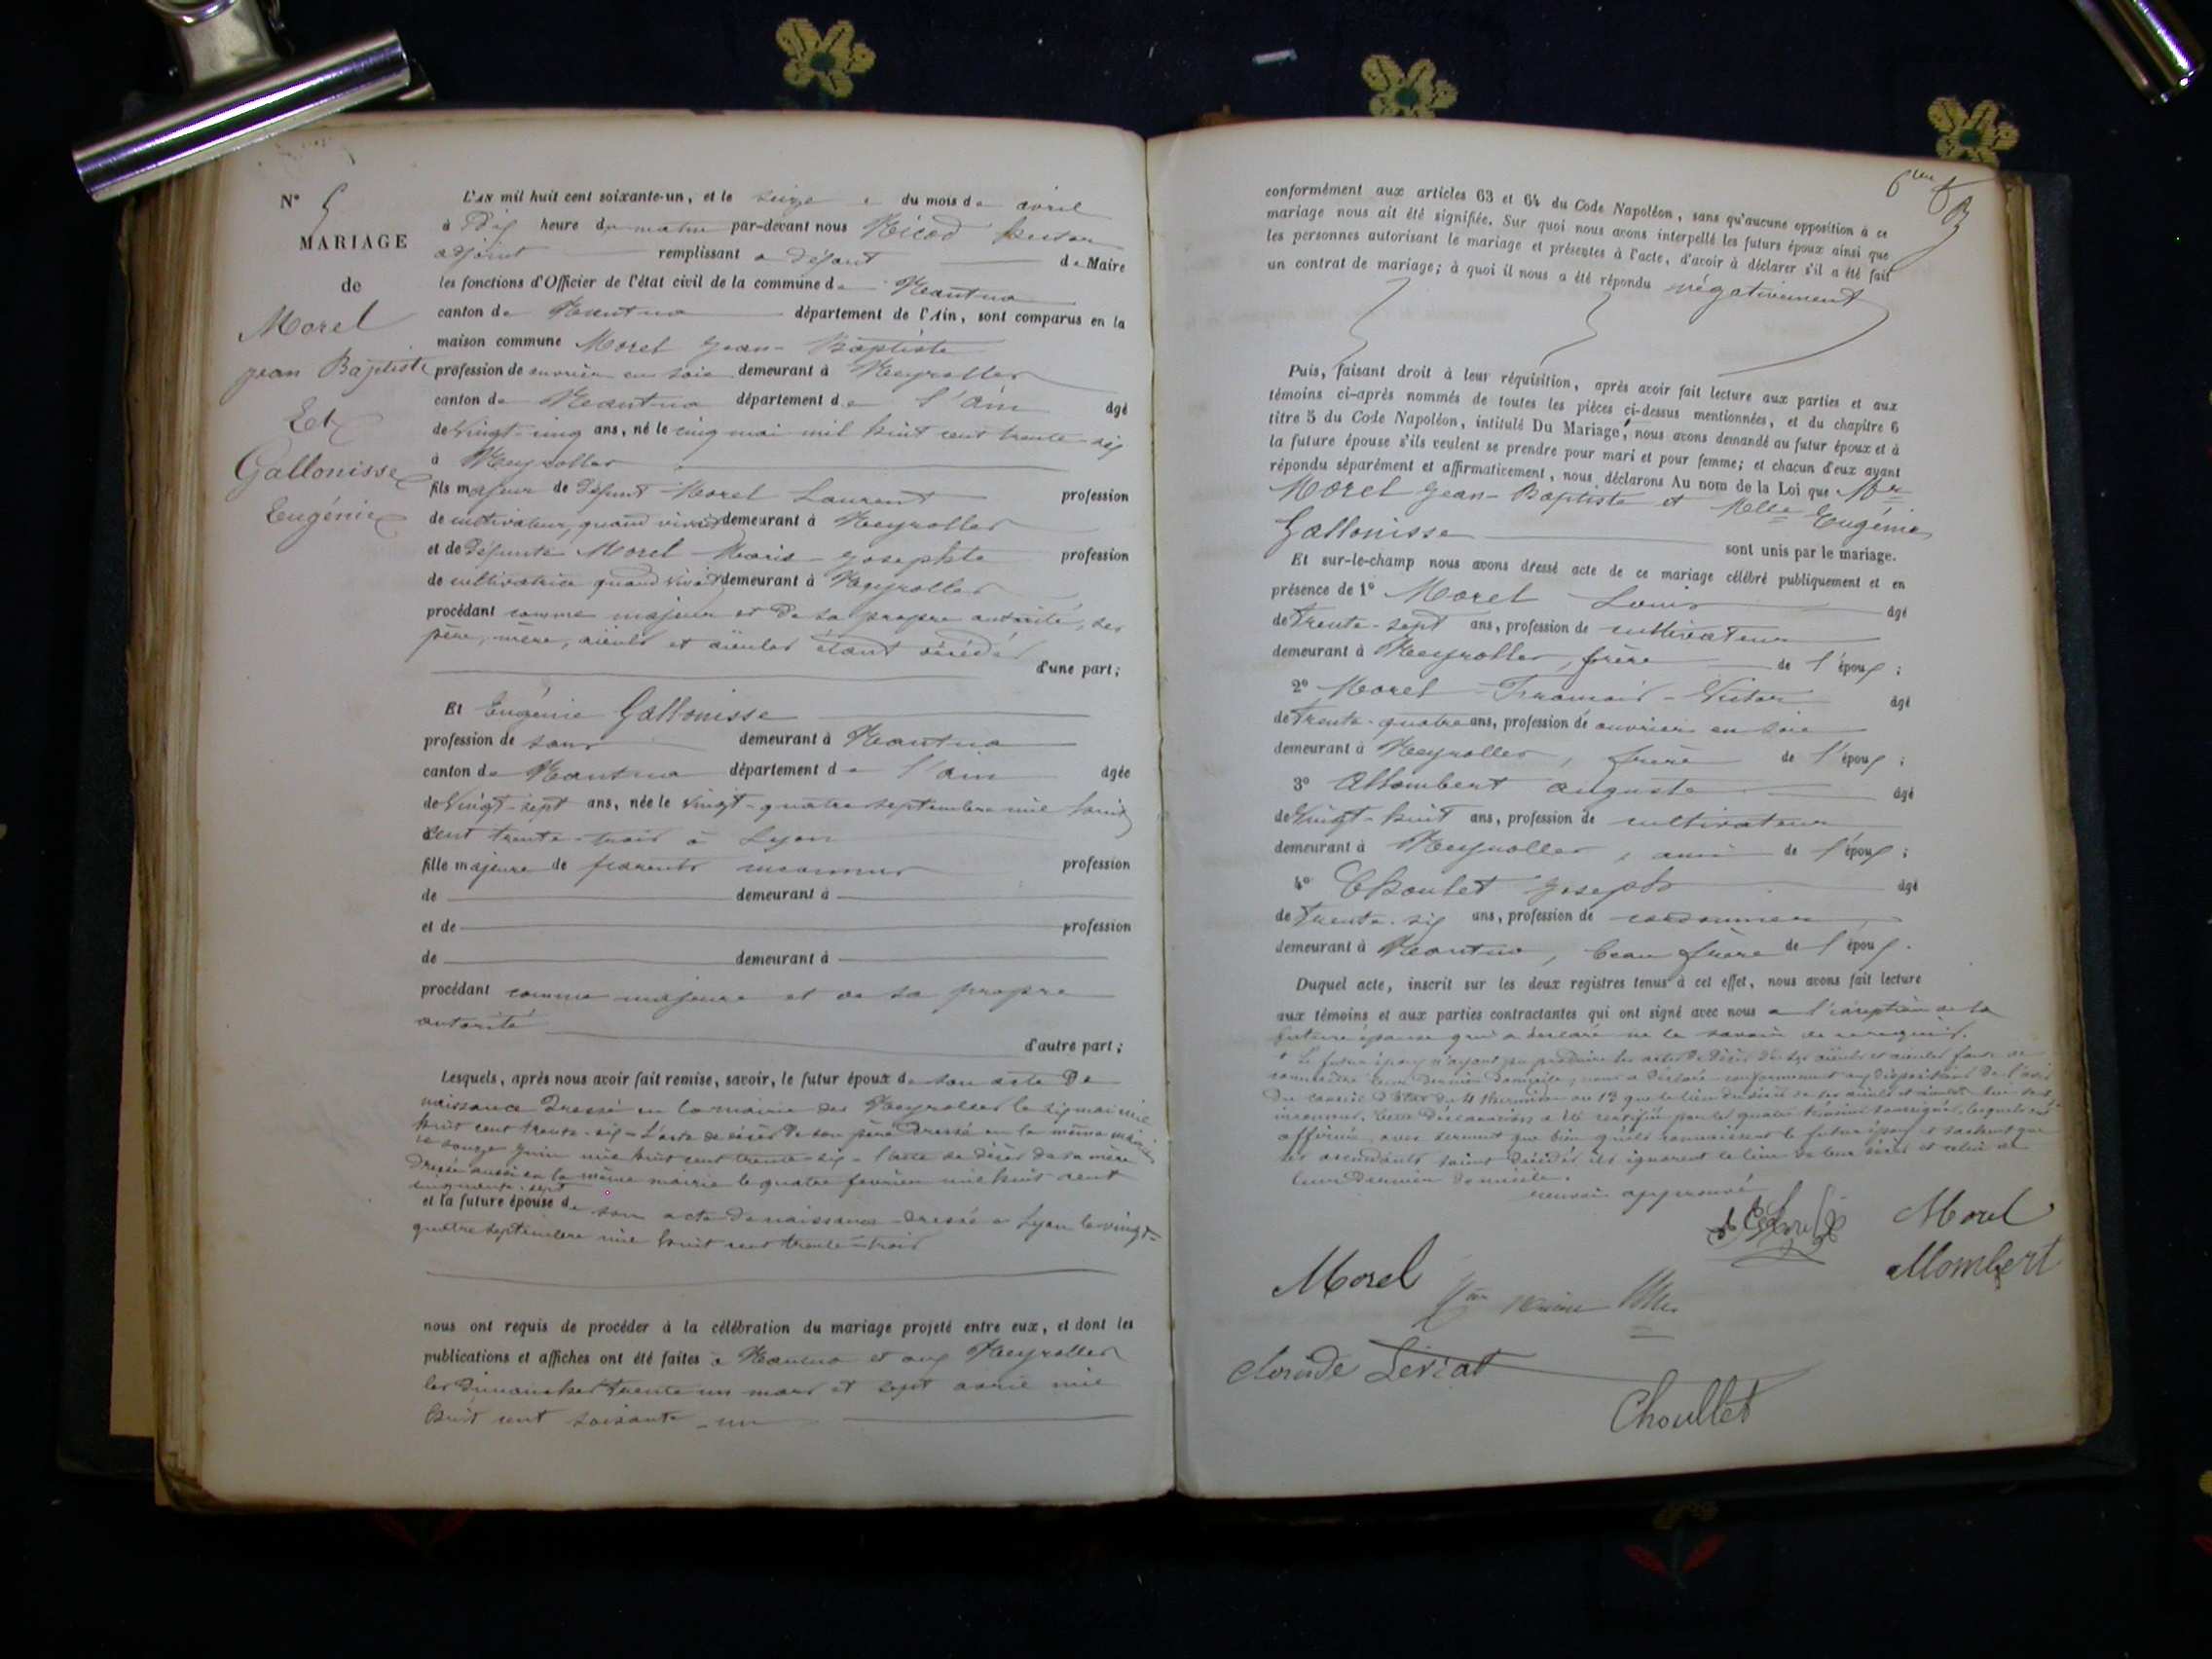 N° 5
MARIAGE
de
Morel
jean Baptiste
Et
Gallonisse
Eugénie
L'AN mil huit cent soixante-un, et le seize du mois de avril
à Dix heure du matin par-devant nous Nicod
adjoint remplissant a défaut de Maire
les fonctions d'Officier de l'état civil de la commune de Nantua
canton de Nantua département de l'Ain, sont comparus en la
maison commune Morel Jean-Baptiste
profession de ouvrier en soie demeurant à Neyrolles
canton de Nantua département de l'ain âgé
de vingt-cinq ans, né le cinq mai mil huit cent trente six
à Neyrolles
fils majeur de défunt Morel Laurent profession
de cultivateur, quand vivait demeurant à Neyrolles
et de défunte Morel Marie-Josephte profession
de cultivatrice quand vivait demeurant à Neyrolles
procédant comme majeur et de sa propre autorité, ses
père, mère, aïeuls et aïeules étant décédés
d'une part;
Et Eugénie Gallonisse
profession de sans demeurant à Nantua
canton de Nantua département de l'ain âgée
de vingt-sept ans, née le vingt-quatre septembre mil huit
cent trente-trois à Lyon
fille majeure de parents inconnus profession
de demeurant à
et de profession
de demeurant à
procédant comme majeure et de sa propre
autorité
d'autre part;
Lesquels, après nous avoir fait remise, savoir, le futur époux de son acte de
naissance dressé en la mairie des Neyrolles le six mai mil
huit cent trente-six - L'acte de décès de son père dressé en la même mairie
le douze juin mil huit cent trente-six - l'acte de décès de sa mère
dressé aussi en la même mairie le quatre février mil huit cent
cinquante-sept
et la future épouse de son acte de naissance dressé à Lyon le vingt-
quatre septembre mil huit cent trente-trois
nous ont requis de procéder à la célébration du mariage projeté entre eux, et dont les
publications et affiches ont été faites à Nantua et aux Neyrolles
les dimanches trente un mars et sept avril mil
huit cent soixante-un
conformément aux articles 63 et 64 du Code Napoléon, sans qu'aucune opposition à ce
mariage nous ait été signifiée. Sur quoi nous avons interpellé les futurs époux ainsi que
les personnes autorisant le mariage et présentes à l'acte, d'avoir à déclarer s'il a été fait
un contrat de mariage; à quoi il nous a été répondu négativement
Puis, faisant droit à leur réquisition, après avoir fait lecture aux parties et aux
témoins ci-après nommés de toutes les pièces ci-dessus mentionnées, et du chapitre 6
titre 5 du Code Napoléon, intitulé Du Mariage, nous avons demandé au futur époux et à
la future épouse s'ils veulent se prendre pour mari et pour femme; et chacun d'eux ayant
répondu séparément et affirmativement, nous déclarons Au nom de la Loi que Mr
Morel Jean-Baptiste et Melle Eugénie
Gallonisse sont unis par le mariage.
Et sur-le-champ nous avons dressé acte de ce mariage célébré publiquement et en
présence de 1° Morel Louis âgé
de Trente-sept ans, profession de cultivateur
demeurant à Neyrolles, frère de l'époux;
2° Morel François-Victor âgé
de Trente-quatre ans, profession de ouvrier en soie
demeurant à Neyrolles, frère de l'époux;
3° Allombert auguste âgé
de Vingt-huit ans, profession de cultivateur
demeurant à Neyrolles, ami de l'époux;
4° Choulet Joseph âgé
de Trente-six ans, profession de cordonnier
demeurant à Nantua, beau frère de l'époux.
Duquel acte, inscrit sur les deux registres tenus à cet effet, nous avons fait lecture
aux témoins et aux parties contractantes qui ont signé avec nous a l'exception de la
future épouse qui a déclaré ne le savoir de ce requis.
Le futur époux n'ayant pu produire les actes de décès de ses aïeuls et aïeules faute de
connaître leur dernier domicile, nous a déclaré conformément aux dispositions de l'avis
du conseil d'Etat du 4 thermidor an 13 que le lieu du décès de ses aïeuls et aïeules lui sont
inconnus. Cette déclaration a été certifiée par les quatre témoins soussignés, lesquels ont
affirmé avec serment que bien qu'ils connaissent le futur époux et sachent que
ses ascendants soient décédés ils ignorent le lieu de leur décès et celui de
leur dernier domicile.
approuvé
Morel
Morel
Allombert
Levrat
Choullet